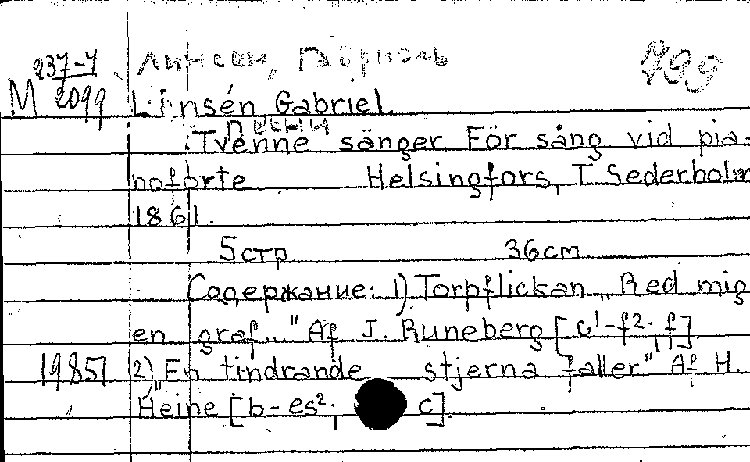 237-4 Линсен, Габриэль 799
M 2099 Linsén Gabriel
Песни
Tvenne sånger För sång vid pia-
noforte Helsingfors, T. Sederholm
1861.
5 стр 36 см
Содержание: 1) Torpflickan „Red mig
en graf..." Af J. Runeberg [c¹-f²; f]
19857 2) „En tindrande stjerna faller" Af H.
Heine [b-es²; c].